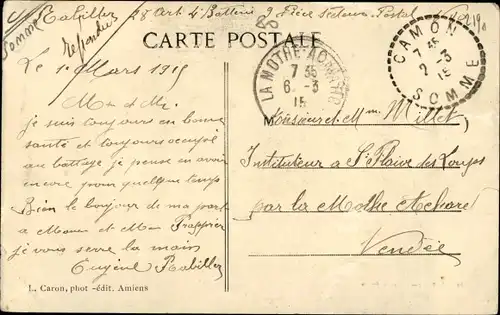 E. Rabiller 28 Art. 4e Batterie 9e Pièce Secteur Postal
Somme
répondu
CARTE POSTALE
LA MOTHE-ACHARD
7 35
6 -3
15
CAMON
7 35
2 -3
15
SOMME
Le 1 Mars 1915
Mr et Me
je suis toujours en bonne
santé et toujours occupé
au battage je pense en avoir
encore pour quelque temps
Bien le bonjour de ma part
à Mr et Me Frappier
je vous serre la main
Eugène Rabiller
Monsieur et Mme Millet
Instituteur à St Flaive des Loups
par la Mothe Achard
Vendée
L. Caron, phot -édit. Amiens